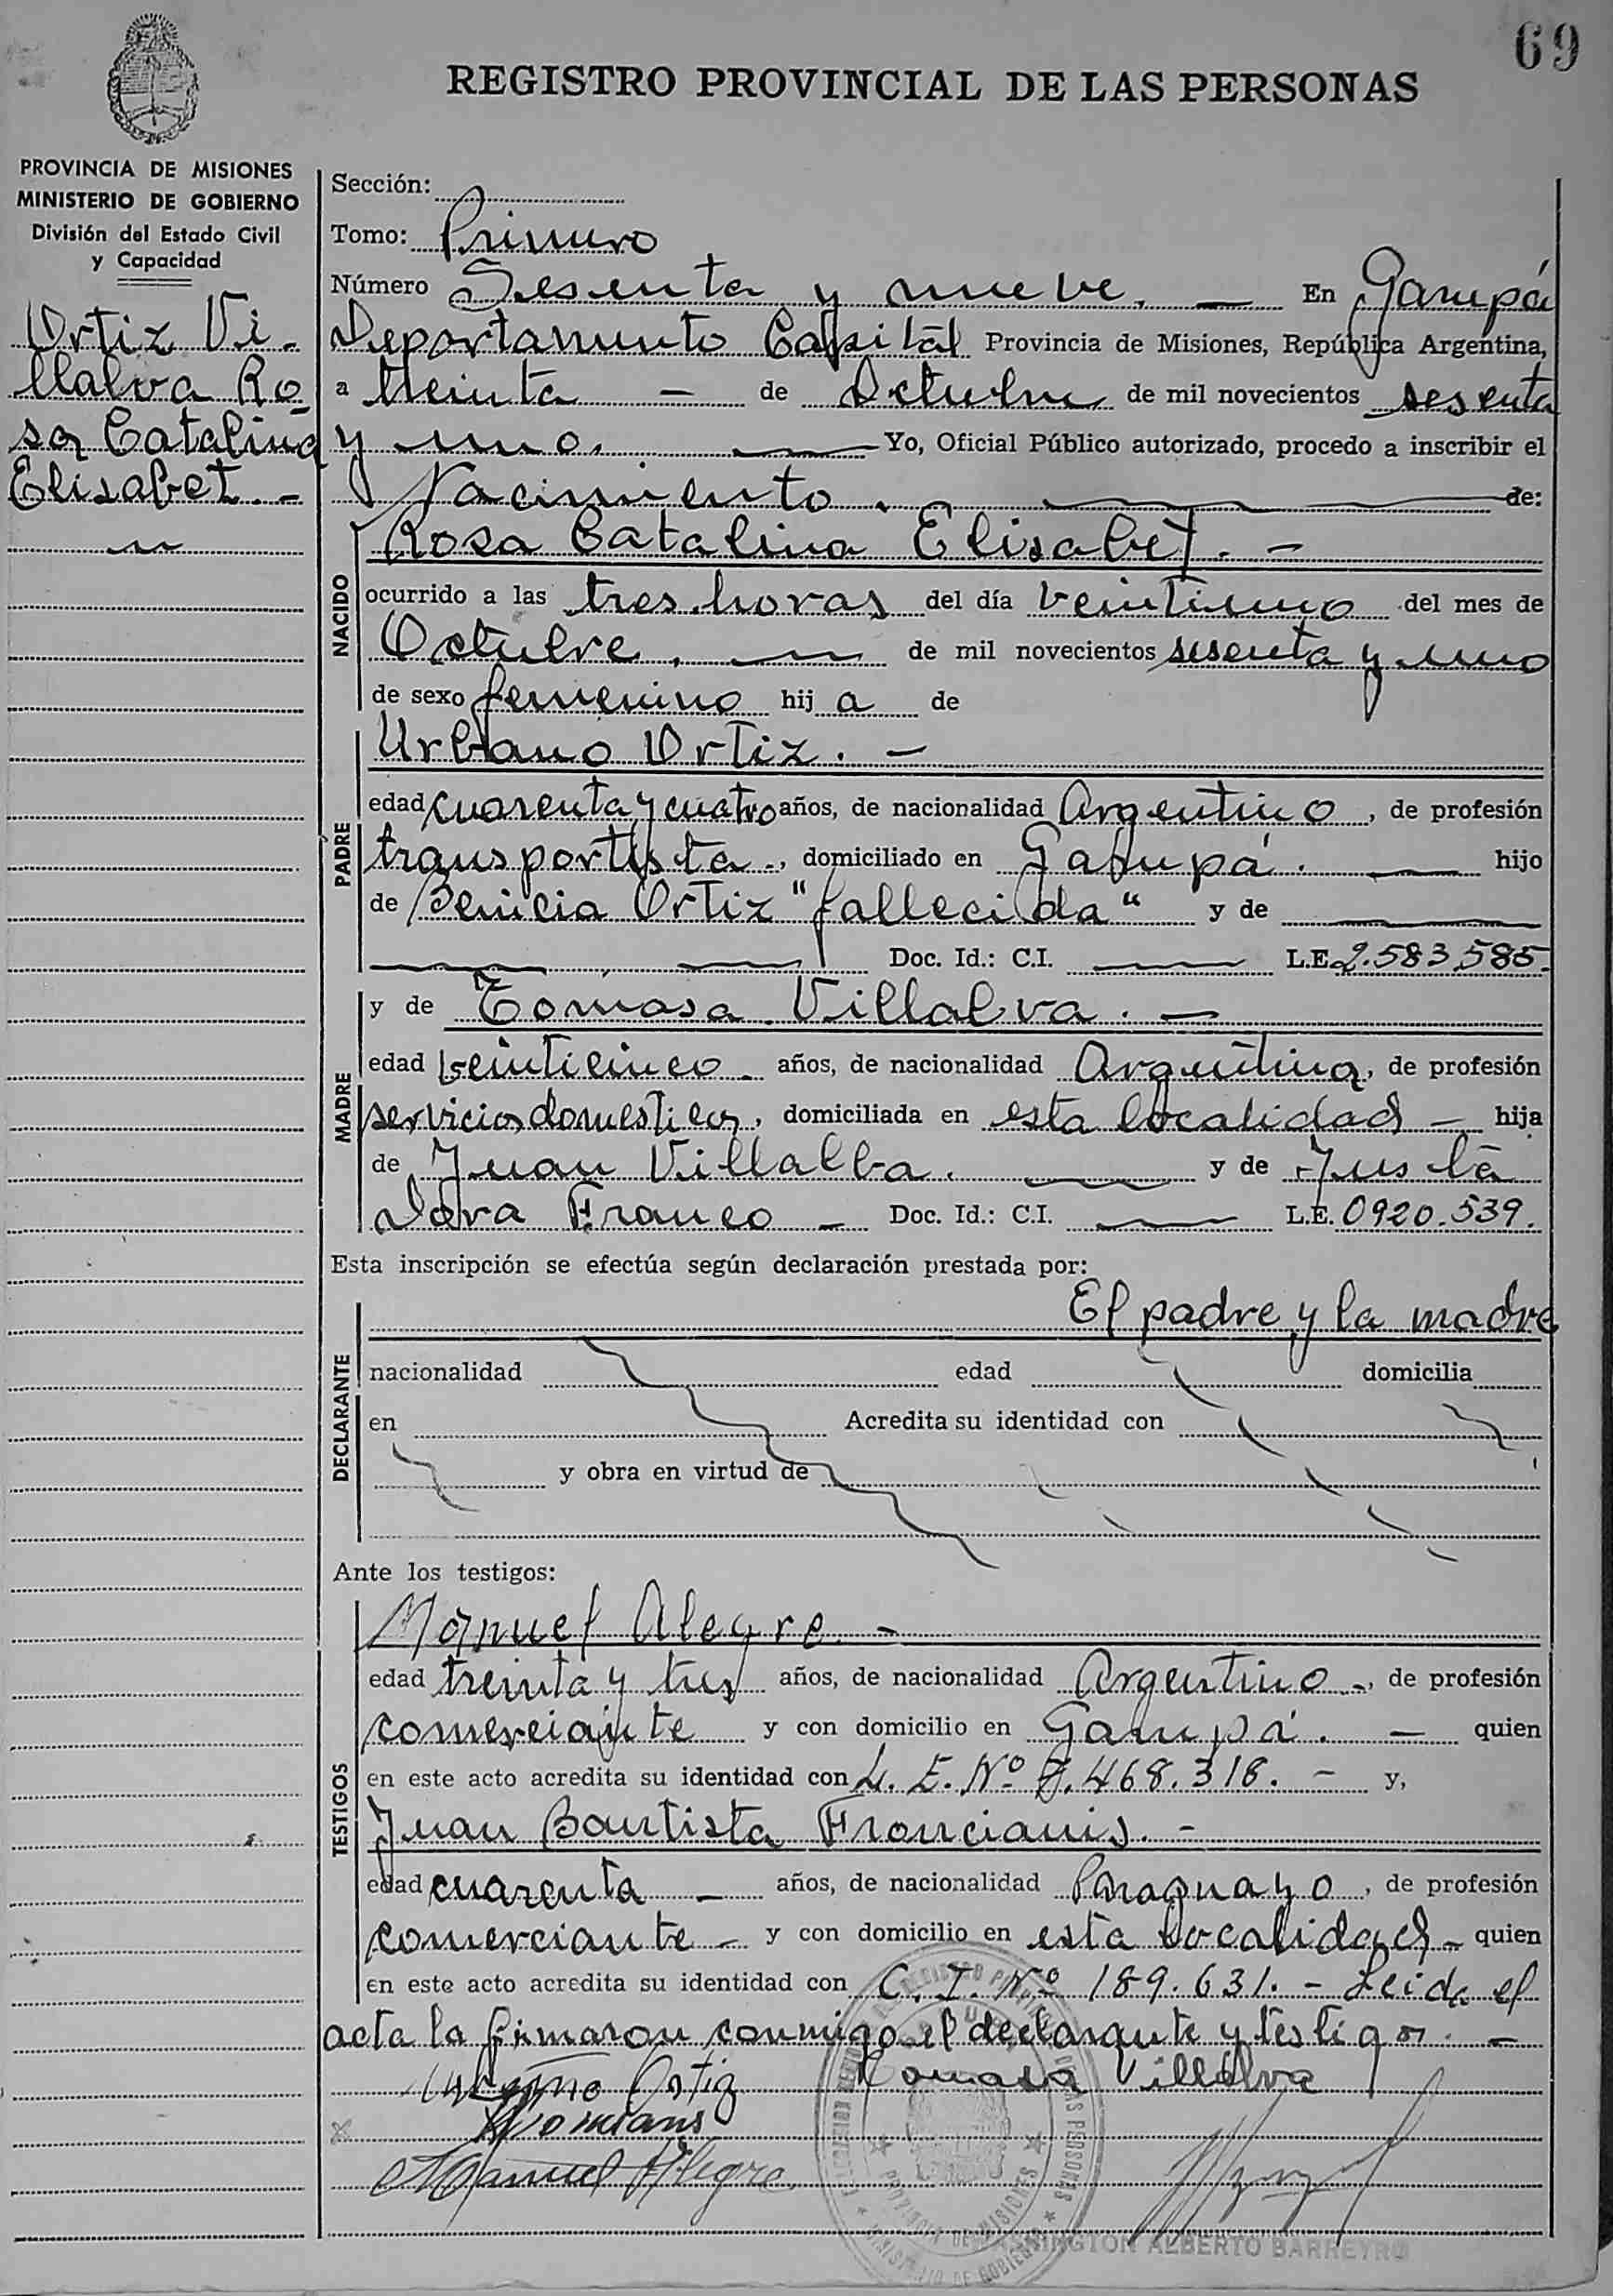 69
REGISTRO PROVINCIAL DE LAS PERSONAS
PROVINCIA DE MISIONES
MINISTERIO DE GOBIERNO
División del Estado Civil
y Capacidad
Ortiz Vi-
llalva Ro-
sa Catalina
Elisabet. -
Sección:
Tomo: Primero
Número Sesenta y nueve. — En Garupá
Departamento Capital Provincia de Misiones, República Argentina,
a treinta — de Octubre de mil novecientos sesenta
y uno. — Yo, Oficial Público autorizado, procedo a inscribir el
Nacimiento. — de:
NACIDO
Rosa Catalina Elisabet. -
ocurrido a las tres horas del día veintiuno del mes de
Octubre. — de mil novecientos sesenta y uno
de sexo femenino hija de
PADRE
Urbano Ortiz. -
edad cuarenta y cuatro años, de nacionalidad Argentino, de profesión
transportista., domiciliado en Garupá. — hijo
de Benicia Ortiz "fallecida" y de —
— — Doc. Id.: C.I. — L.E. 2.583.585.
MADRE
y de Tomasa Villalva. -
edad veinticinco. años, de nacionalidad Argentina, de profesión
servicios domesticos, domiciliada en esta localidad — hija
de Juan Villalba. — y de Justa
Dora Franco — Doc. Id.: C.I. — L.E. 0920.539.
Esta inscripción se efectúa según declaración prestada por:
DECLARANTE
El padre y la madre
nacionalidad edad domicilia
en Acredita su identidad con
y obra en virtud de
Ante los testigos:
TESTIGOS
Manuel Alegre. -
edad treinta y tres años, de nacionalidad Argentino -, de profesión
comerciante y con domicilio en Garupá. — quien
en este acto acredita su identidad con L. E. Nº 7.468.318. - y,
Juan Bautista -
edad cuarenta — años, de nacionalidad Paraguayo, de profesión
comerciante - y con domicilio en esta localidad - quien
en este acto acredita su identidad con C. I. Nº 189.631. - Leida el
acta la firmaron conmigo el declarante y testigos. -
Urbano Ortiz Tomasa Villalva
Manuel Alegre
PROVINCIA DE MISIONES
MINISTERIO DE GOBIERNO
WASHINGTON ALBERTO BARREYRO